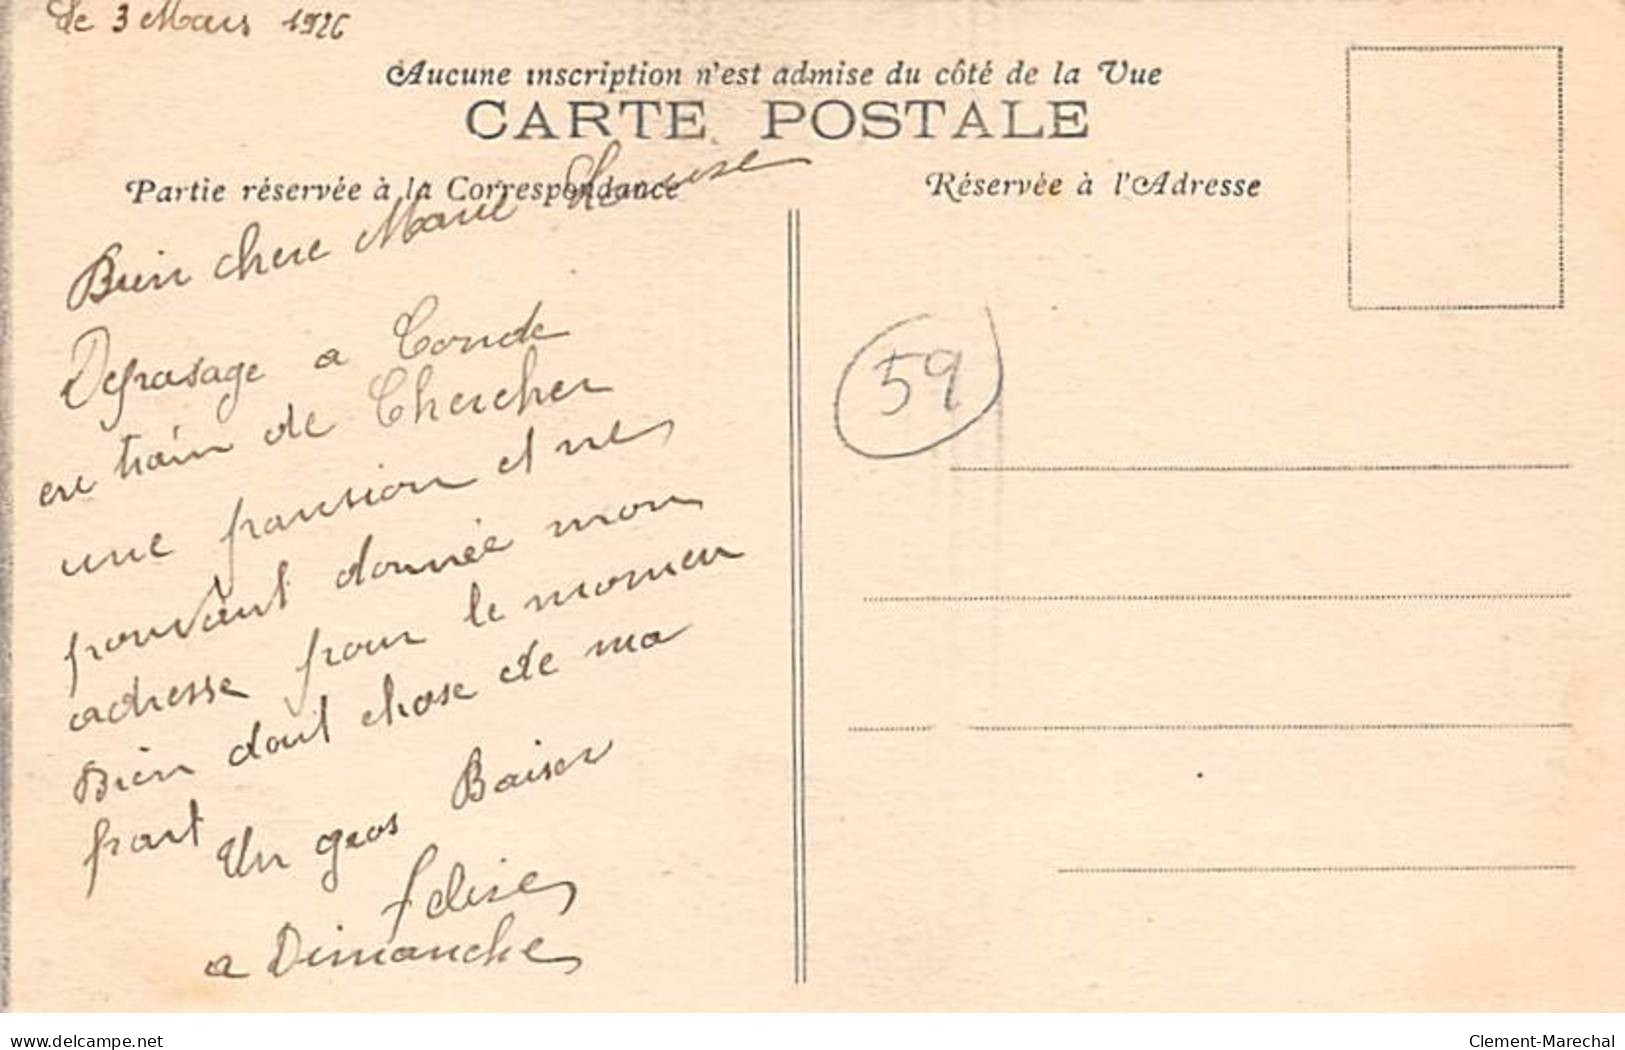 Le 3 Mars 1926
Aucune inscription n'est admise du côté de la Vue
CARTE POSTALE
Partie réservée à la Correspondance
Réservée à l'Adresse
Bien chere Marie Louise
Depasage a Conde
en train de Chercher
une pansion et ne
pouvant donnée mon
adresse pour le momen
Bien dout chose de ma
part
Un gros Baiser
Felise
a Dimanche
59
www.delcampe.net
Clement-Marechal